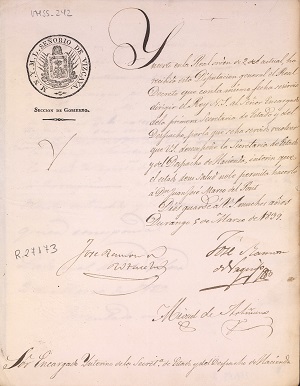 VMSS-242
M.N. Y M.L. SEÑORIO DE VIZCAYA
SECCION DE GOBIERNO.
Con la Real orden de 2 del actual, ha
recibido esta Diputacion general el Real
Decreto que con la misma fecha se sirvió
dirigir el Rey N.S. al Señor Encargado
de la primera Secretaria de Estado y del
Despacho, por la que se ha servido resolver
que V.S. desempeñe la Secretaria de Estado
y del Despacho de Hacienda, interin que
el estado de su salud no le permita hacerlo
á Dn. Juan José Marcó del Pont.
Dios guarde á V.S. muchos años
Durango 5 de Marzo de 1839.
R.27173
José Ramon
José Ramon
Miguel de Artiñano
Sor. Encargado Interino de la Secreta. de Estado y del Despacho de Hacienda